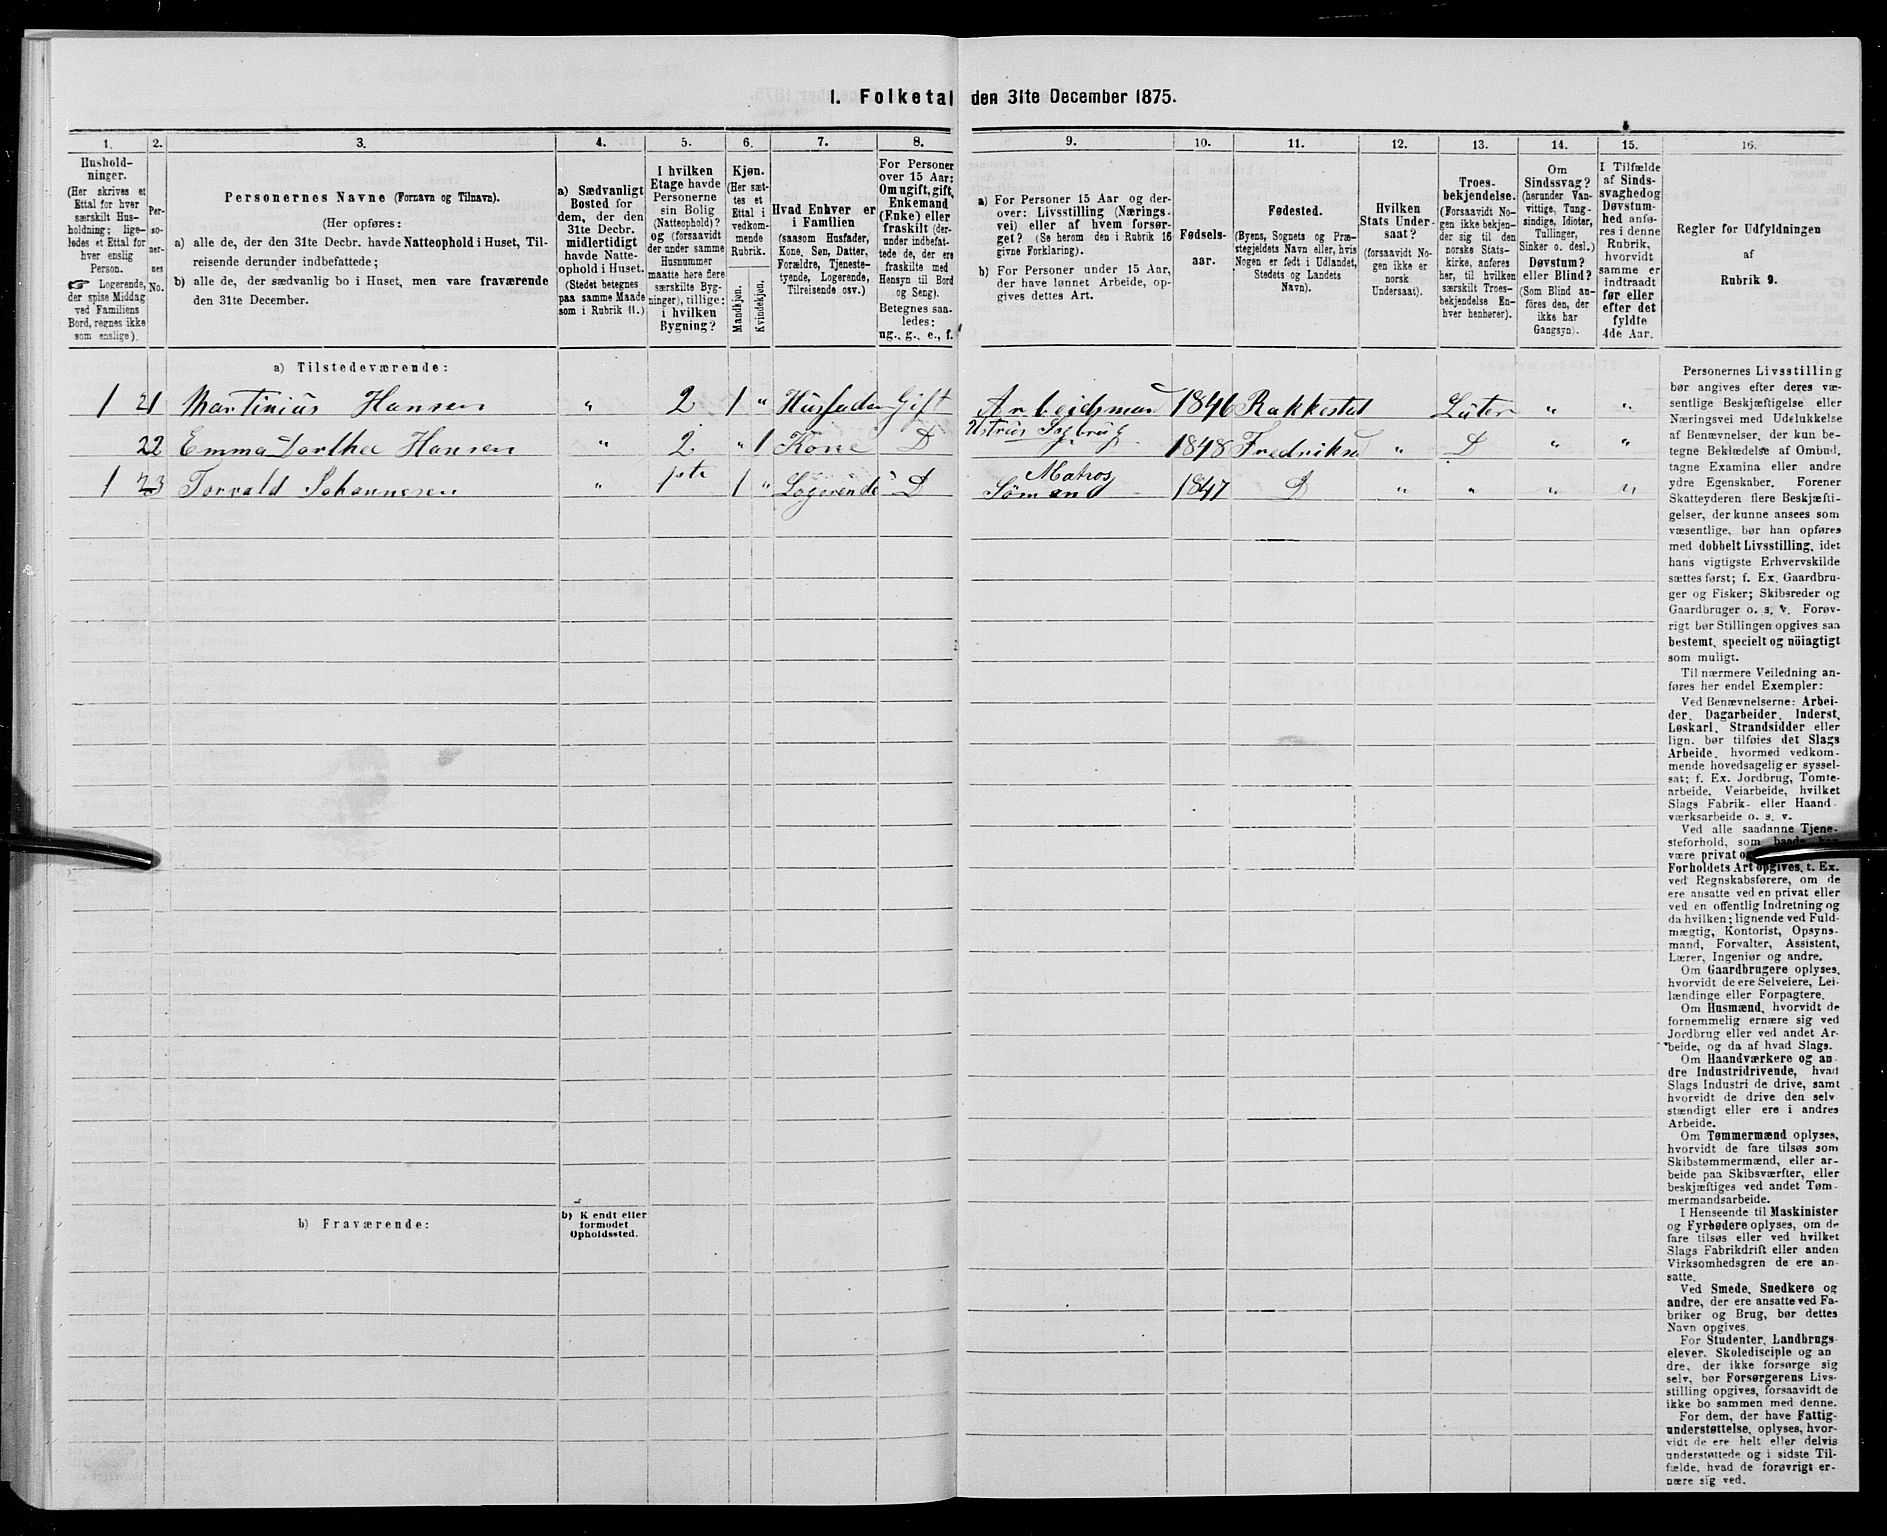 1. Folketal den 31te December 1875.
1.
Hushold-
ninger.
(Her skrives et
Ettal for hver
særskilt Hus-
holdning; lige-
ledes et Ettal for
hver enslig
Person.
☞ Logerende,
der spise Middag
ved Familiens
Bord, regnes ikke
som enslige).
2.
Per-
so-
ner-
nes
No.
3.
Personernes Navne (Fornavn og Tilnavn).
(Her opføres:
a) alle de, der den 31te Decbr. havde Natteophold i Huset, Til-
reisende derunder indbefattede;
b) alle de, der sædvanlig bo i Huset, men vare fraværende
den 31te December.
4.
a) Sædvanligt
Bosted for
dem, der den
31te Decbr.
midlertidigt
havde Natte-
ophold i Huset.
(Stedet betegnes
paa samme Maade
som i Rubrik 11.)
5.
I hvilken
Etage havde
Personerne
sin Bolig
(Natteophold)?
og (forsaavidt
der under samme
Husnummer
maatte høre flere
særskilte Byg-
ninger), tillige:
i hvilken
Bygning?
6.
Kjøn.
(Her sæt-
tes et
Ettal i
vedkom-
mende
Rubrik.
Mandkjøn.
Kvindekjøn.
7.
Hvad Enhver er
i Familien
(saasom Husfader,
Kone, Søn, Datter,
Forældre, Tjeneste-
tyende, Logerende,
Tilreisende osv.)
8.
For Personer
over 15 Aar:
Om ugift, gift,
Enkemand
(Enke) eller
fraskilt (der-
under indbefat-
tede de, der ere
fraskilte med
Hensyn til Bord
og Seng).
Betegnes saa-
ledes:
ug., g., e., f.
9.
a) For Personer 15 Aar og der-
over: Livsstilling (Nærings-
vei) eller af hvem forsør-
get? (Se herom den i Rubrik 16
givne Forklaring).
b) For Personer under 15 Aar,
der have lønnet Arbeide, op-
gives dettes Art.
10.
Fødsels-
aar.
11.
Fødested.
(Byens, Sognets og Præ-
stegjeldets Navn eller, hvis
Nogen er født i Udlandet,
Stedets og Landets
Navn).
12.
Hvilken
Stats Under-
saat?
(forsaavidt No-
gen ikke er
norsk
Undersaat).
13.
Troes-
bekjendelse.
(Forsaavidt No-
gen ikke bekjen-
der sig til den
norske Stats-
kirke, anføres
her, til hvilken
særskilt Troes-
bekjendelse En-
hver henhører).
14.
Om
Sindssvag?
(herunder Van-
vittige, Tung-
sindige, Idioter,
Tullinger,
Sinker o. desl.)
Døvstum?
eller Blind?
(Som Blind an-
føres den, der
ikke har
Gangsyn).
15.
I Tilfælde
af Sinds-
svaghed og
Døvstum-
hed anfø-
res i denne
Rubrik,
hvorvidt
samme er
indtraadt
før eller
efter det
fyldte
4de Aar.
16.
Regler for Udfyldningen
af
Rubrik 9.
a) Tilstedeværende:
1 21 Martinius Hansen " 2 1 " Husfader Gift Arbeidsmand 1846 Rakkestad Luter " "
Sagbrug
22 Emma Dorthea Hansen " 2 " 1 Kone D 1848 Fredriksd " D " "
Matros
1 23 Torvald Johannesen " 1ste 1 " Logerende D Sømand 1847 D " " " "
b) Fraværende:
b) Kjendt eller
formodet
Opholdssted.
Personernes Livsstilling
bør angives efter deres væ-
sentlige Beskjæftigelse eller
Næringsvei med Udelukkelse
af Benævnelser, der kun be-
tegne Beklædelse af Ombud,
tagne Examina eller andre
ydre Egenskaber. Forener
Skatteyderen flere Beskjæfti-
gelser, der kunne ansees som
væsentlige, bør han opføres
med dobbelt Livsstilling, idet
hans vigtigste Erhvervskilde
sættes først; f. Ex. Gaardbru-
ger og Fisker; Skibsreder og
Gaardbruger o. s. v. Forøv-
rigt bør Stillingen opgives saa
bestemt, specielt og nöiagtigt
som muligt.
Til nærmere Veiledning an-
føres her endel Exempler:
Ved Benævnelserne: Arbei-
der, Dagarbeider, Inderst,
Løskarl, Strandsidder eller
lign. bør tilføies det Slags
Arbeide, hvormed vedkom-
mende hovedsagelig er syssel-
sat; f. Ex. Jordbrug, Tomte-
arbeide, Veiarbeide, hvilket
Slags Fabrik- eller Haand-
værksarbeide o. s. v.
Ved alle saadanne Tjene-
steforhold, som baade kan
være privat og
Forholdets Art opgives, t. Ex.
ved Regnskabsførere, om de
ere ansatte ved en privat eller
ved en offentlig Indretning og
da hvilken; lignende ved Fuld-
mægtig, Kontorist, Opsyns-
mand, Forvalter, Assistent,
Lærer, Ingeniør og andre.
Om Gaardbrugere oplyses,
hvorvidt de ere Selveiere, Lei-
lændinge eller Forpagtere.
Om Husmænd, hvorvidt de
fornemmelig ernære sig ved
Jordbrug eller ved andet Ar-
beide, og da af hvad Slags.
Om Haandværkere og an-
dre Industridrivende, hvad
Slags Industri de drive, samt
hvorvidt de drive den selv-
stændigt eller ere i andres
Arbeide.
Om Tømmermænd oplyses,
hvorvidt de fare tilsøs som
Skibstømmermænd, eller ar-
beide paa Skibsværfter, eller
beskjæftiges ved andet Tøm-
mermandsarbeide.
I Henseende til Maskinister
og Fyrbødere oplyses, om de
fare tilsøs eller ved hvilket
Slags Fabrikdrift eller anden
Virksomhedsgren de ere an-
satte.
Ved Smede, Snedkere og
andre, der ere ansatte ved Fa-
briker og Brug, bør dettes
Navn opgives.
For Studenter, Landbrugs-
elever, Skoledisciple og an-
dre, der ikke forsørge sig
selv, bør Forsørgerens Livs-
stilling opgives, forsaavidt de
ikke bo sammen med denne.
For dem, der have Fattig-
understøttelse, oplyses, hvor-
vidt de ere helt eller delvis
understøttede og i sidste Til-
fælde, hvad de forøvrigt er-
nære sig ved.